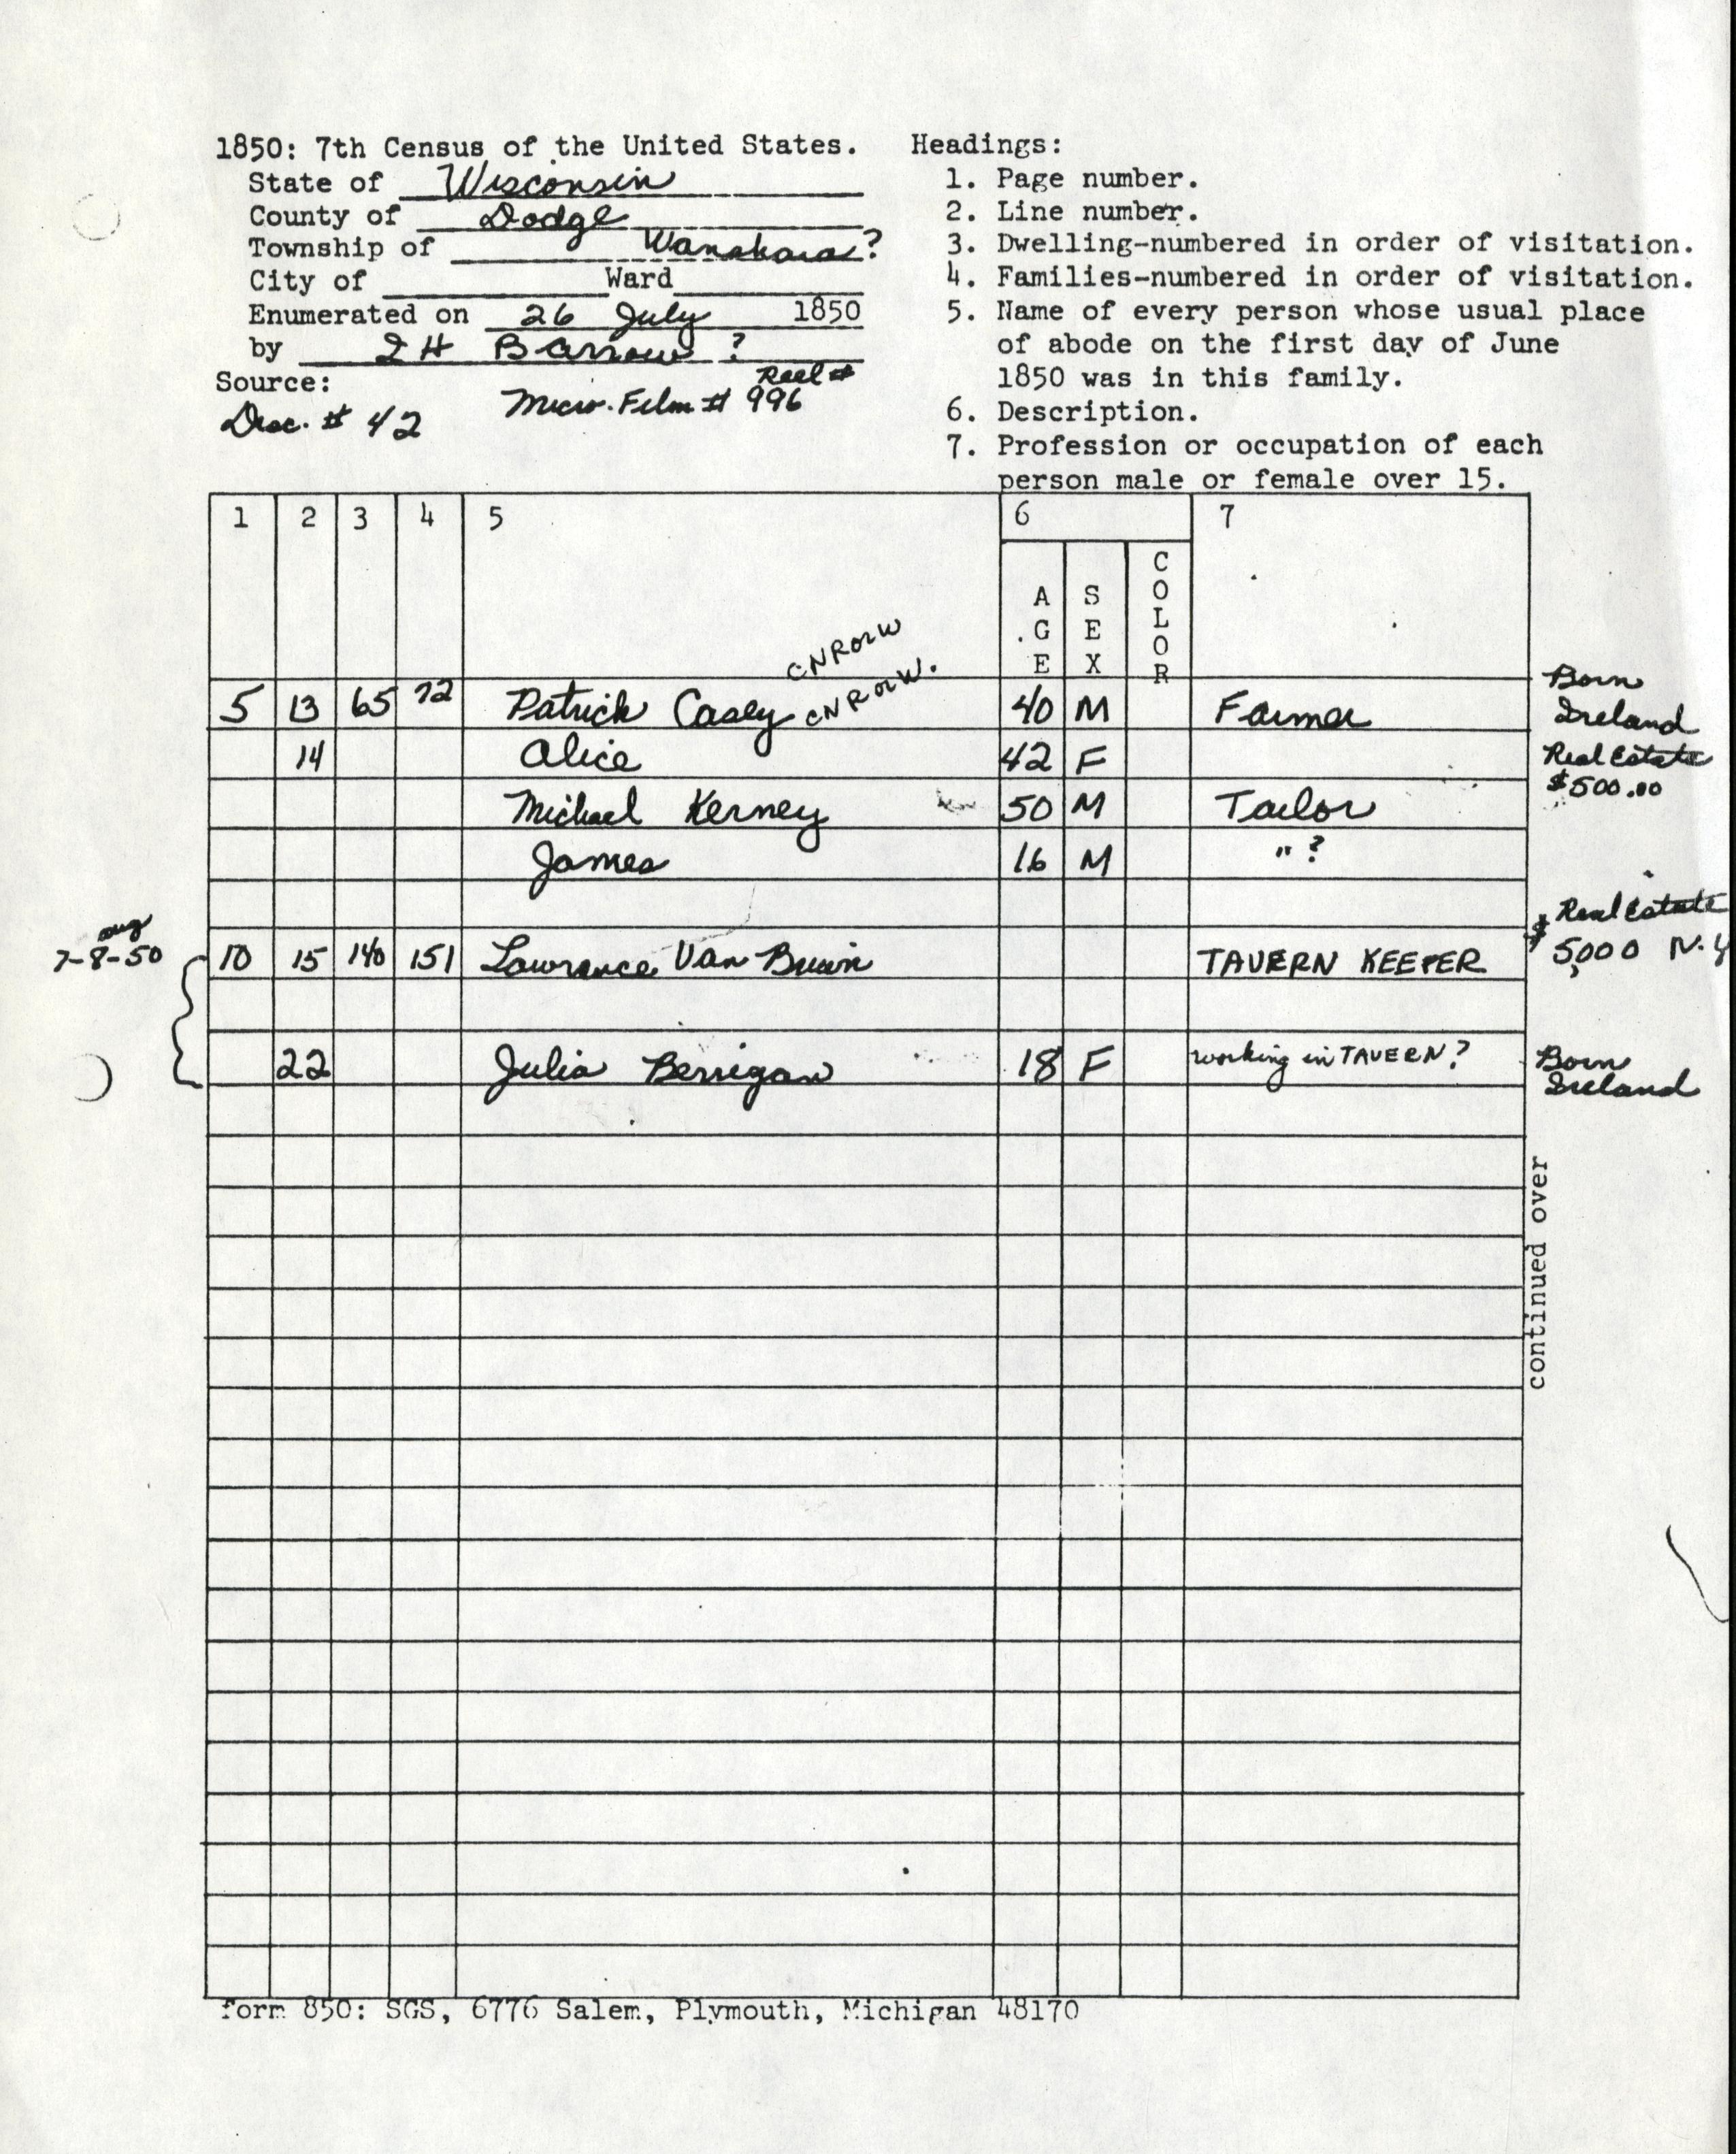 1850: 7th Census of the United States.
State of Wisconsin
County of Dodge
Township of Wanakara?
City of Ward
Enumerated on 26 July 1850
by I H Barrow ?
Source:
Doc. # 42 Micro. Film # Reel # 996
Headings:
1. Page number.
2. Line number.
3. Dwelling-numbered in order of visitation.
4. Families-numbered in order of visitation.
5. Name of every person whose usual place
of abode on the first day of June
1850 was in this family.
6. Description.
7. Profession or occupation of each
person male or female over 15.
1 2 3 4 5 6 7
AGE SEX COLOR
CNR or W
5 13 65 72 Patrick Casey CNR or W. 40 M Farmer Born Ireland
14 Alice 42 F Real Estate $500.00
Michael Kerney 50 M Tailor
James 16 M " ?
Real Estate
aug
7-8-50 10 15 140 151 Lowrance Van Buin TAVERN KEEPER $ 5,000 N.Y
22 Julia Berrigan 18 F working in TAVERN? Born Ireland
continued over
form 850: SGS, 6776 Salem, Plymouth, Michigan 48170